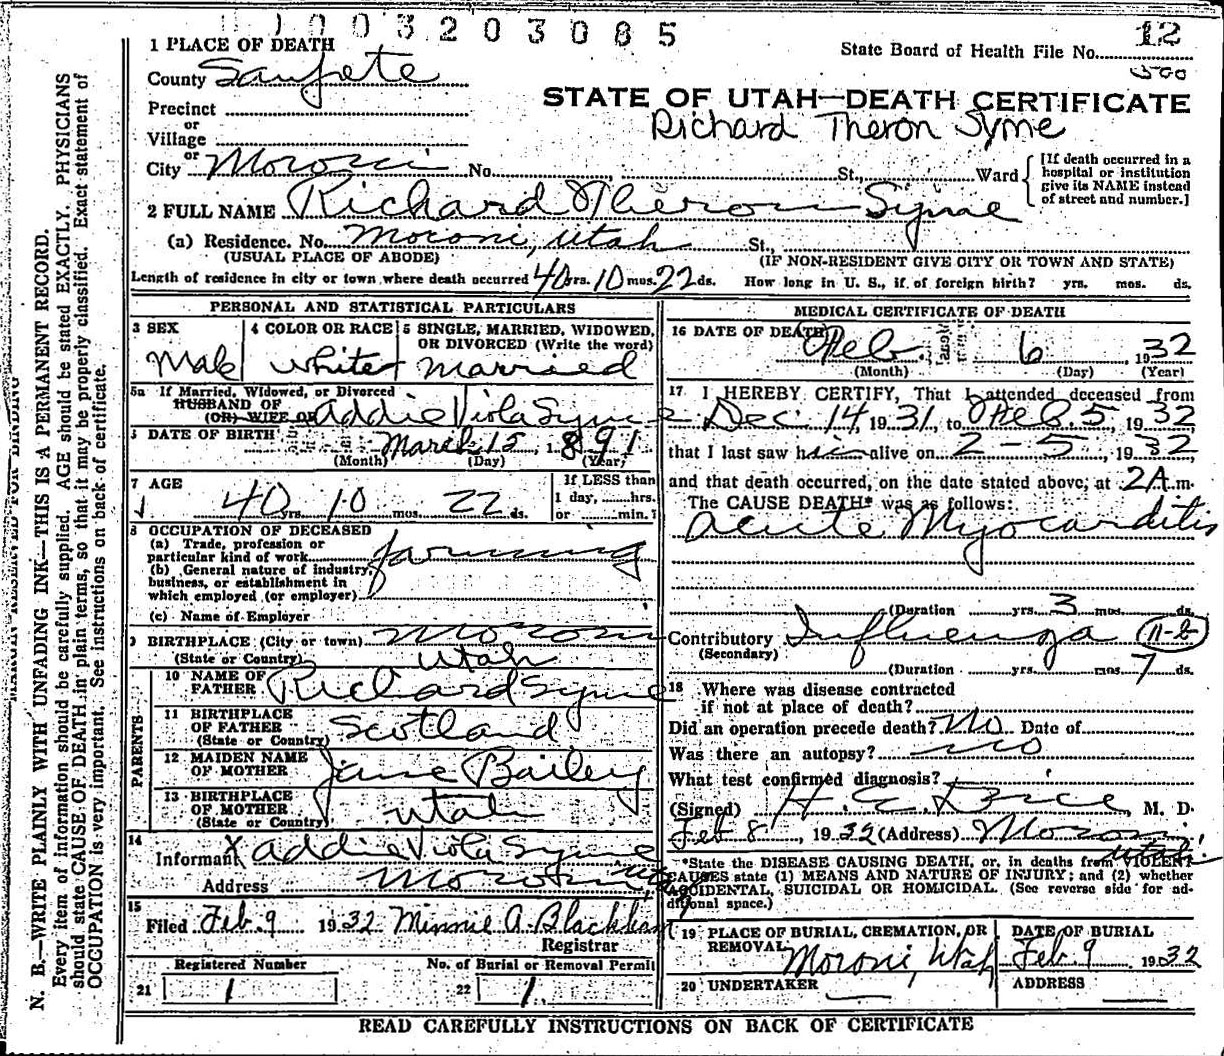 1003203085
1 PLACE OF DEATH
State Board of Health File No. 12
500
County Sanpete
STATE OF UTAH—DEATH CERTIFICATE
Precinct
Richard Theron Syme
or
Village
or
City Moroni No. St., Ward
[If death occurred in a
hospital or institution
give its NAME instead
of street and number.]
2 FULL NAME Richard Theron Syme
(a) Residence. No. Moroni, Utah St.,
(USUAL PLACE OF ABODE) (IF NON-RESIDENT GIVE CITY OR TOWN AND STATE)
Length of residence in city or town where death occurred 40 yrs. 10 mos. 22 ds. How long in U. S., if of foreign birth? yrs. mos. ds.
PERSONAL AND STATISTICAL PARTICULARS
3 SEX
Male
4 COLOR OR RACE
white
5 SINGLE, MARRIED, WIDOWED,
OR DIVORCED (Write the word)
married
5a If Married, Widowed, or Divorced
HUSBAND OF
(OR) WIFE OF Addie Viola Syme
DATE OF BIRTH March 15 1891
(Month) (Day) (Year)
7 AGE
40 yrs. 10 mos. 22 ds.
If LESS than
1 day, hrs.
or min.?
8 OCCUPATION OF DECEASED
(a) Trade, profession or
particular kind of work farming
(b) General nature of industry,
business, or establishment in
which employed (or employer)
(c) Name of Employer
9 BIRTHPLACE (City or town) Moroni
(State or Country) Utah
PARENTS
10 NAME OF
FATHER Richard Syme
11 BIRTHPLACE
OF FATHER
(State or Country) Scotland
12 MAIDEN NAME
OF MOTHER Jane Bailey
13 BIRTHPLACE
OF MOTHER
(State or Country) Utah
14
Informant X Addie Viola Syme
Address Moroni, Ut
15
Filed Feb. 9 1932 Minnie A. Blackham
Registrar
Registered Number No. of Burial or Removal Permit
21 1 22 1
MEDICAL CERTIFICATE OF DEATH
16 DATE OF DEATH Feb. 6 1932
(Month) (Day) (Year)
17 I HEREBY CERTIFY, That I attended deceased from
Dec. 14, 1931, to Feb. 5, 1932
that I last saw him alive on 2-5, 1932
and that death occurred, on the date stated above, at 2A.m.
The CAUSE DEATH* was as follows:
Acute Myocarditis
(Duration yrs. 3 mos. ds.
Contributory Influenza 11-b
(Secondary)
(Duration yrs. mos. 7 ds.
18 Where was disease contracted
if not at place of death?
Did an operation precede death? No Date of
Was there an autopsy? no
What test confirmed diagnosis?
(Signed) M. D.
Feb 8, 1932 (Address) Moroni,
Utah
*State the DISEASE CAUSING DEATH, or, in deaths from VIOLENT
CAUSES state (1) MEANS AND NATURE OF INJURY; and (2) whether
ACCIDENTAL, SUICIDAL OR HOMICIDAL. (See reverse side for ad-
ditional space.)
19 PLACE OF BURIAL, CREMATION, OR
REMOVAL Moroni, Utah
DATE OF BURIAL
Feb. 9 1932
20 UNDERTAKER ADDRESS
READ CAREFULLY INSTRUCTIONS ON BACK OF CERTIFICATE
MARGIN RESERVED FOR BINDING
N. B.—WRITE PLAINLY WITH UNFADING INK—THIS IS A PERMANENT RECORD.
Every item of information should be carefully supplied. AGE should be stated EXACTLY. PHYSICIANS
should state CAUSE OF DEATH in plain terms, so that it may be properly classified. Exact statement of
OCCUPATION is very important. See instructions on back of certificate.